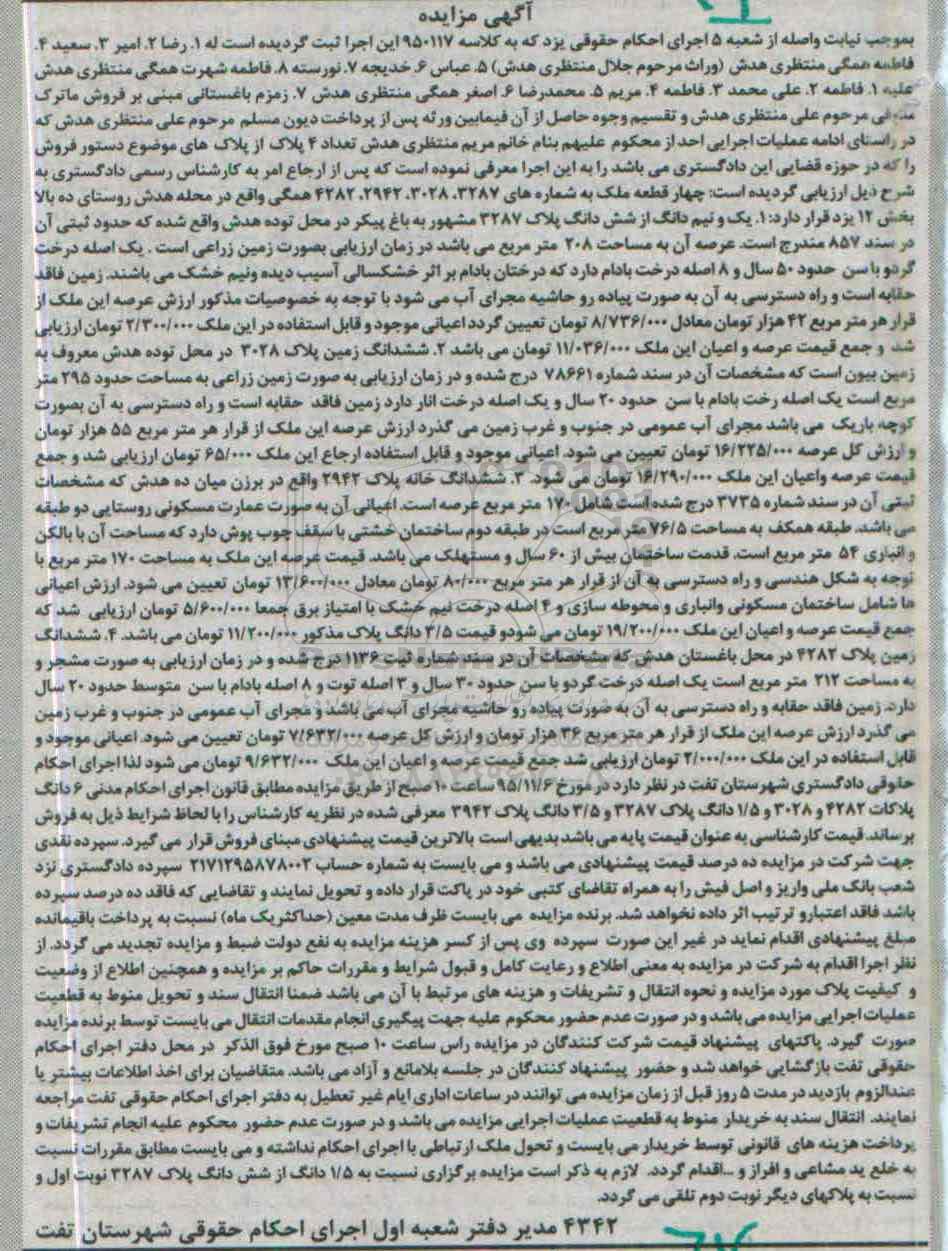 آگهی مزایده
بموجب نیابت واصله از شعبه ۵ اجرای احکام حقوقی یزد که به کلاسه ۹۵۰۱۱۷ این اجرا ثبت گردیده است له ۱. رضا ۲. امیر ۳. سعید ۴.
فاطمه همگی منتظری هدش (وراث مرحوم جلال منتظری هدش) ۵. عباس ۶. خدیجه ۷. نورسته ۸. فاطمه شهرت همگی منتظری هدش
علیه ۱. فاطمه ۲. علی محمد ۳. فاطمه ۴. مریم ۵. محمدرضا ۶. اصغر همگی منتظری هدش ۷. زمزم باغستانی مبنی بر فروش ماترک
متوفی مرحوم علی منتظری هدش و تقسیم وجوه حاصل از آن فیمابین ورثه پس از پرداخت دیون مسلم مرحوم علی منتظری هدش که
در راستای ادامه عملیات اجرایی احد از محکوم علیهم بنام خانم مریم منتظری هدش تعداد ۴ پلاک از پلاک های موضوع دستور فروش
را که در حوزه قضایی این دادگستری می باشد را به این اجرا معرفی نموده است که پس از ارجاع امر به کارشناس رسمی دادگستری به
شرح ذیل ارزیابی گردیده است: چهار قطعه ملک به شماره های ۳۲۸۷، ۳۰۲۸، ۲۹۴۲، ۴۲۸۲ همگی واقع در محله هدش روستای ده بالا
بخش ۱۲ یزد قرار دارد: ۱. یک و نیم دانگ از شش دانگ پلاک ۳۲۸۷ مشهور به باغ پیکر در محل توده هدش واقع شده که حدود ثبتی آن
در سند ۸۵۷ مندرج است. عرصه آن به مساحت ۲۰۸ متر مربع می باشد در زمان ارزیابی بصورت زمین زراعی است . یک اصله درخت
گردو با سن حدود ۵۰ سال و ۸ اصله درخت بادام دارد که درختان بادام بر اثر خشکسالی آسیب دیده ونیم خشک می باشند. زمین فاقد
حقابه است و راه دسترسی به آن به صورت پیاده رو حاشیه مجرای آب می شود با توجه به خصوصیات مذکور ارزش عرصه این ملک از
قرار هر متر مربع ۴۲ هزار تومان معادل ۸/۷۳۶/۰۰۰ تومان تعیین گردد اعیانی موجود و قابل استفاده در این ملک ۲/۳۰۰/۰۰۰ تومان ارزیابی
شد و جمع قیمت عرصه و اعیان این ملک ۱۱/۰۳۶/۰۰۰ تومان می باشد ۲. ششدانگ زمین پلاک ۳۰۲۸ در محل توده هدش معروف به
زمین بیون است که مشخصات آن در سند شماره ۷۸۶۶۱ درج شده و در زمان ارزیابی به صورت زمین زراعی به مساحت حدود ۲۹۵ متر
مربع است یک اصله رخت بادام با سن حدود ۲۰ سال و یک اصله درخت انار دارد زمین فاقد حقابه است و راه دسترسی به آن بصورت
کوچه باریک می باشد مجرای آب عمومی در جنوب و غرب زمین می گذرد ارزش عرصه این ملک از قرار هر متر مربع ۵۵ هزار تومان
و ارزش کل عرصه ۱۶/۲۲۵/۰۰۰ تومان تعیین می شود. اعیانی موجود و قابل استفاده ارجاع این ملک ۶۵/۰۰۰ تومان ارزیابی شد و جمع
قیمت عرصه واعیان این ملک ۱۶/۲۹۰/۰۰۰ تومان می شود. ۳. ششدانگ خانه پلاک ۲۹۴۲ واقع در برزن میان ده هدش که مشخصات
ثبتی آن در سند شماره ۳۷۳۵ درج شده است شامل ۱۷۰ متر مربع عرصه است. اعیانی آن به صورت عمارت مسکونی روستایی دو طبقه
می باشد. طبقه همکف به مساحت ۷۶/۵ متر مربع است در طبقه دوم ساختمان خشتی با سقف چوب پوش دارد که مساحت آن با بالکن
و انباری ۵۴ متر مربع است. قدمت ساختمان بیش از ۶۰ سال و مستهلک می باشد. قیمت عرصه این ملک به مساحت ۱۷۰ متر مربع با
توجه به شکل هندسی و راه دسترسی به آن از قرار هر متر مربع ۸۰/۰۰۰ تومان معادل ۱۳/۶۰۰/۰۰۰ تومان تعیین می شود. ارزش اعیانی
ها شامل ساختمان مسکونی وانباری و محوطه سازی و ۴ اصله درخت نیم خشک با امتیاز برق جمعا ۵/۶۰۰/۰۰۰ تومان ارزیابی شد که
جمع قیمت عرصه و اعیان این ملک ۱۹/۲۰۰/۰۰۰ تومان می شودو قیمت ۳/۵ دانگ پلاک مذکور ۱۱/۲۰۰/۰۰۰ تومان می باشد. ۴. ششدانگ
زمین پلاک ۴۲۸۲ در محل باغستان هدش که مشخصات آن در سند شماره ثبت ۱۱۳۶ درج شده و در زمان ارزیابی به صورت مشجر و
به مساحت ۲۱۲ متر مربع است یک اصله درخت گردو با سن حدود ۳۰ سال و ۳ اصله توت و ۸ اصله بادام با سن متوسط حدود ۲۰ سال
دارد. زمین فاقد حقابه و راه دسترسی به آن به صورت پیاده رو حاشیه مجرای آب می باشد و مجرای آب عمومی در جنوب و غرب زمین
می گذرد ارزش عرصه این ملک از قرار هر متر مربع ۳۶ هزار تومان و ارزش کل عرصه ۷/۶۳۲/۰۰۰ تومان تعیین می شود. اعیانی موجود و
قابل استفاده در این ملک ۲/۰۰۰/۰۰۰ تومان ارزیابی شد جمع قیمت عرصه و اعیان این ملک ۹/۶۳۲/۰۰۰ تومان می شود لذا اجرای احکام
حقوقی دادگستری شهرستان تفت در نظر دارد در مورخ ۹۵/۱۱/۶ ساعت ۱۰ صبح از طریق مزایده مطابق قانون اجرای احکام مدنی ۶ دانگ
پلاکات ۴۲۸۲ و ۳۰۲۸ و ۱/۵ دانگ پلاک ۳۲۸۷ و ۳/۵ دانگ پلاک ۳۹۴۲ معرفی شده در نظریه کارشناس را با لحاظ شرایط ذیل به فروش
برساند. قیمت کارشناسی به عنوان قیمت پایه می باشد بدیهی است بالاترین قیمت پیشنهادی مبنای فروش قرار می گیرد. سپرده نقدی
جهت شرکت در مزایده ده درصد قیمت پیشنهادی می باشد و می بایست به شماره حساب ۲۱۷۱۲۹۵۸۷۸۰۰۲ سپرده دادگستری نزد
شعب بانک ملی واریز و اصل فیش را به همراه تقاضای کتبی خود در پاکت قرار داده و تحویل نمایند و تقاضایی که فاقد ده درصد سپرده
باشد فاقد اعتبارو ترتیب اثر داده نخواهد شد. برنده مزایده می بایست ظرف مدت معین (حداکثریک ماه) نسبت به پرداخت باقیمانده
مبلغ پیشنهادی اقدام نماید در غیر این صورت سپرده وی پس از کسر هزینه مزایده به نفع دولت ضبط و مزایده تجدید می گردد. از
نظر اجرا اقدام به شرکت در مزایده به معنی اطلاع و رعایت کامل و قبول شرایط و مقررات حاکم بر مزایده و همچنین اطلاع از وضعیت
و کیفیت پلاک مورد مزایده و نحوه انتقال و تشریفات و هزینه های مرتبط با آن می باشد ضمنا انتقال سند و تحویل منوط به قطعیت
عملیات اجرایی مزایده می باشد و در صورت عدم حضور محکوم علیه جهت پیگیری انجام مقدمات انتقال می بایست توسط برنده مزایده
صورت گیرد. پاکتهای پیشنهاد قیمت شرکت کنندگان در مزایده راس ساعت ۱۰ صبح مورخ فوق الذکر در محل دفتر اجرای احکام
حقوقی تفت بازگشایی خواهد شد و حضور پیشنهاد کنندگان در جلسه بلامانع و آزاد می باشد. متقاضیان برای اخذ اطلاعات بیشتر یا
عندالزوم بازدید در مدت ۵ روز قبل از زمان مزایده می توانند در ساعات اداری ایام غیر تعطیل به دفتر اجرای احکام حقوقی تفت مراجعه
نمایند. انتقال سند به خریدار منوط به قطعیت عملیات اجرایی مزایده می باشد و در صورت عدم حضور محکوم علیه انجام تشریفات و
پرداخت هزینه های قانونی توسط خریدار می بایست و تحول ملک ارتباطی با اجرای احکام نداشته و می بایست مطابق مقررات نسبت
به خلع ید مشاعی و افراز و ...اقدام گردد. لازم به ذکر است مزایده برگزاری نسبت به ۱/۵ دانگ از شش دانگ پلاک ۳۲۸۷ نوبت اول و
نسبت به پلاکهای دیگر نوبت دوم تلقی می گردد.
۴۳۴۲ مدیر دفتر شعبه اول اجرای احکام حقوقی شهرستان تفت